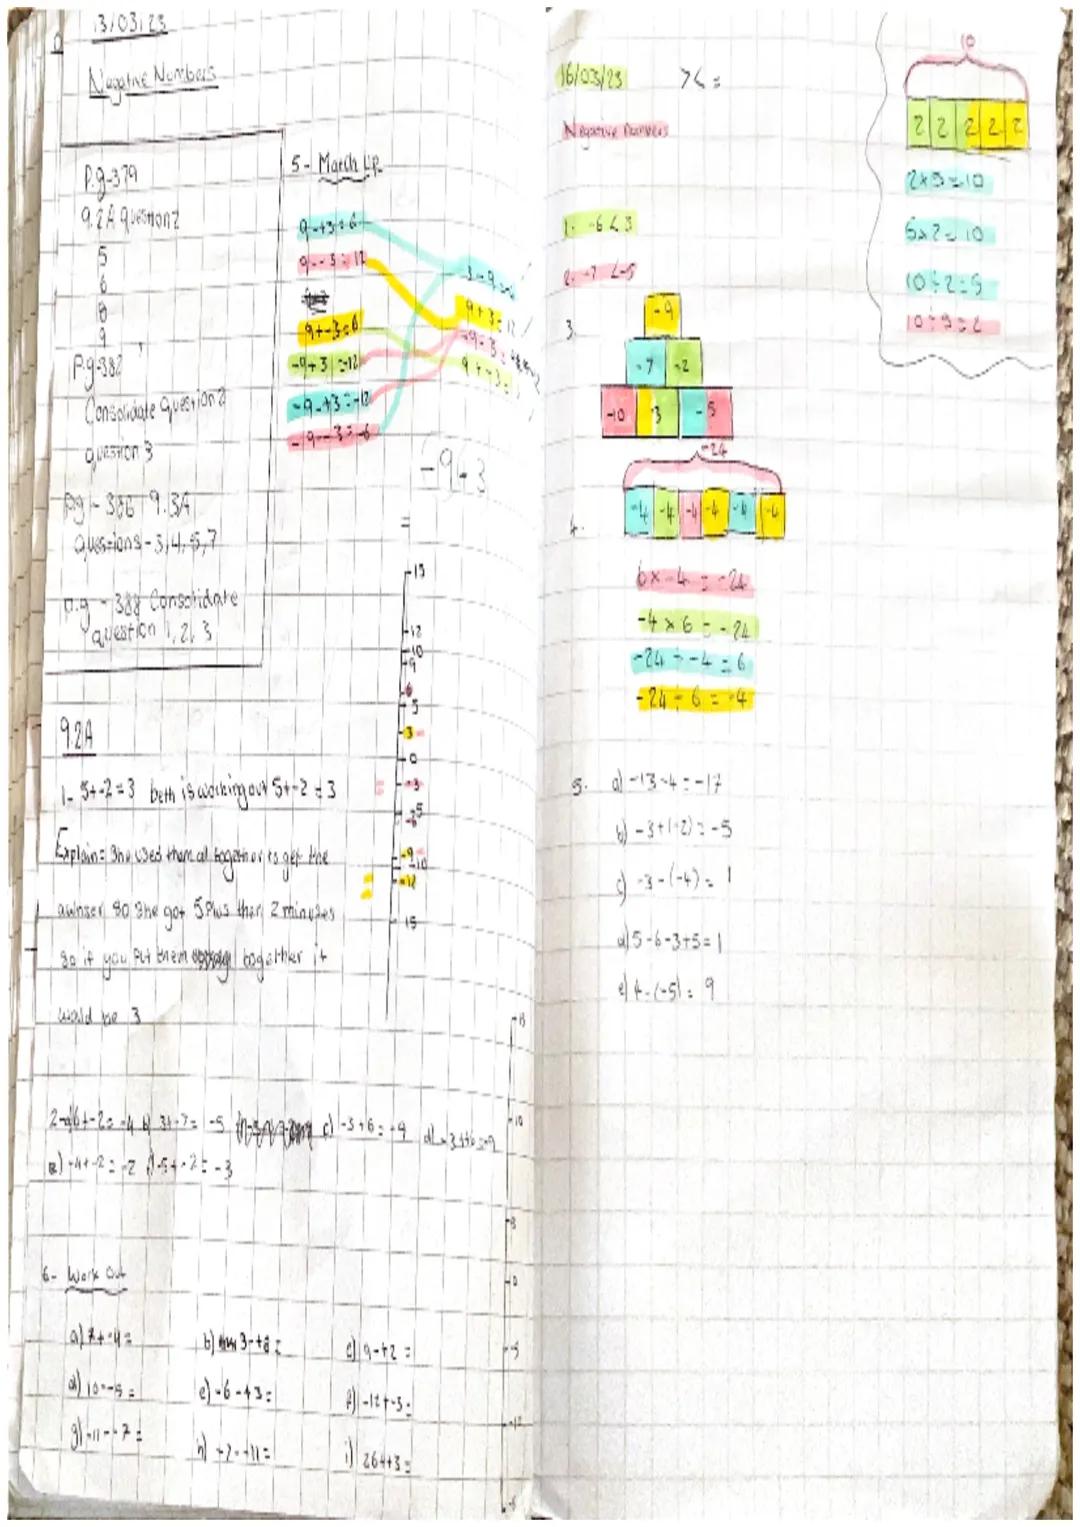 13/03/23
Negative Numbers
P.g-379
9.2A question 2
5
6
8
9
P.g-382
Consolidate question 2
question 3
pg - 386 9.3A
questions - 3,4,5,7
p.g - 388 Consolidate
question 1, 2, 3
5 - Match Up
9-+3=6
9--3=12
9+-3=6
-9+3=-12
-9-+3=-12
-9--3=-6
3-9=
9+3=12
-9-3=
9+-3=
-9+3
=
15
12
10
9
6
5
3
0
-3
-5
-6
-9
-10
-12
15
9.2A
1- 5+-2=3 beth is working out 5+-2=3
Explain: She used them all together to get the
awnser so she got 5 Plus then 2 minuses
so if you Put them together it
would be 3
2-a) 6+-2=-4 b) 3+-7=-5 c) -3+6=+9 d) -3++6=-9
e) -4+-2=-2 f) -5+-2=-3
6- Work Out
a) 7+-4= b) 3-+8= c) 9-+2=
d) 10--5= e) -6-+3= f) -12+-3=
g) -11--7= h) -7--11= i) 264+3=
16/03/23 ><=
Negative numbers
1. -6<3
2. -7<-5
3.
-9
-7 -2
-10 3 -5
-24
4. -4 -4 -4 -4 -4 -4
6x-4=-24
-4x6=-24
-24÷-4=6
-24÷6=-4
5. a) -13-4=-17
b) -3+(-2)=-5
c) -3-(-4)=1
d) 5-6-3+5=1
e) 4-(-5)=9
10
2 2 2 2 2
2x5=10
5x2=10
10÷2=5
10÷5=2